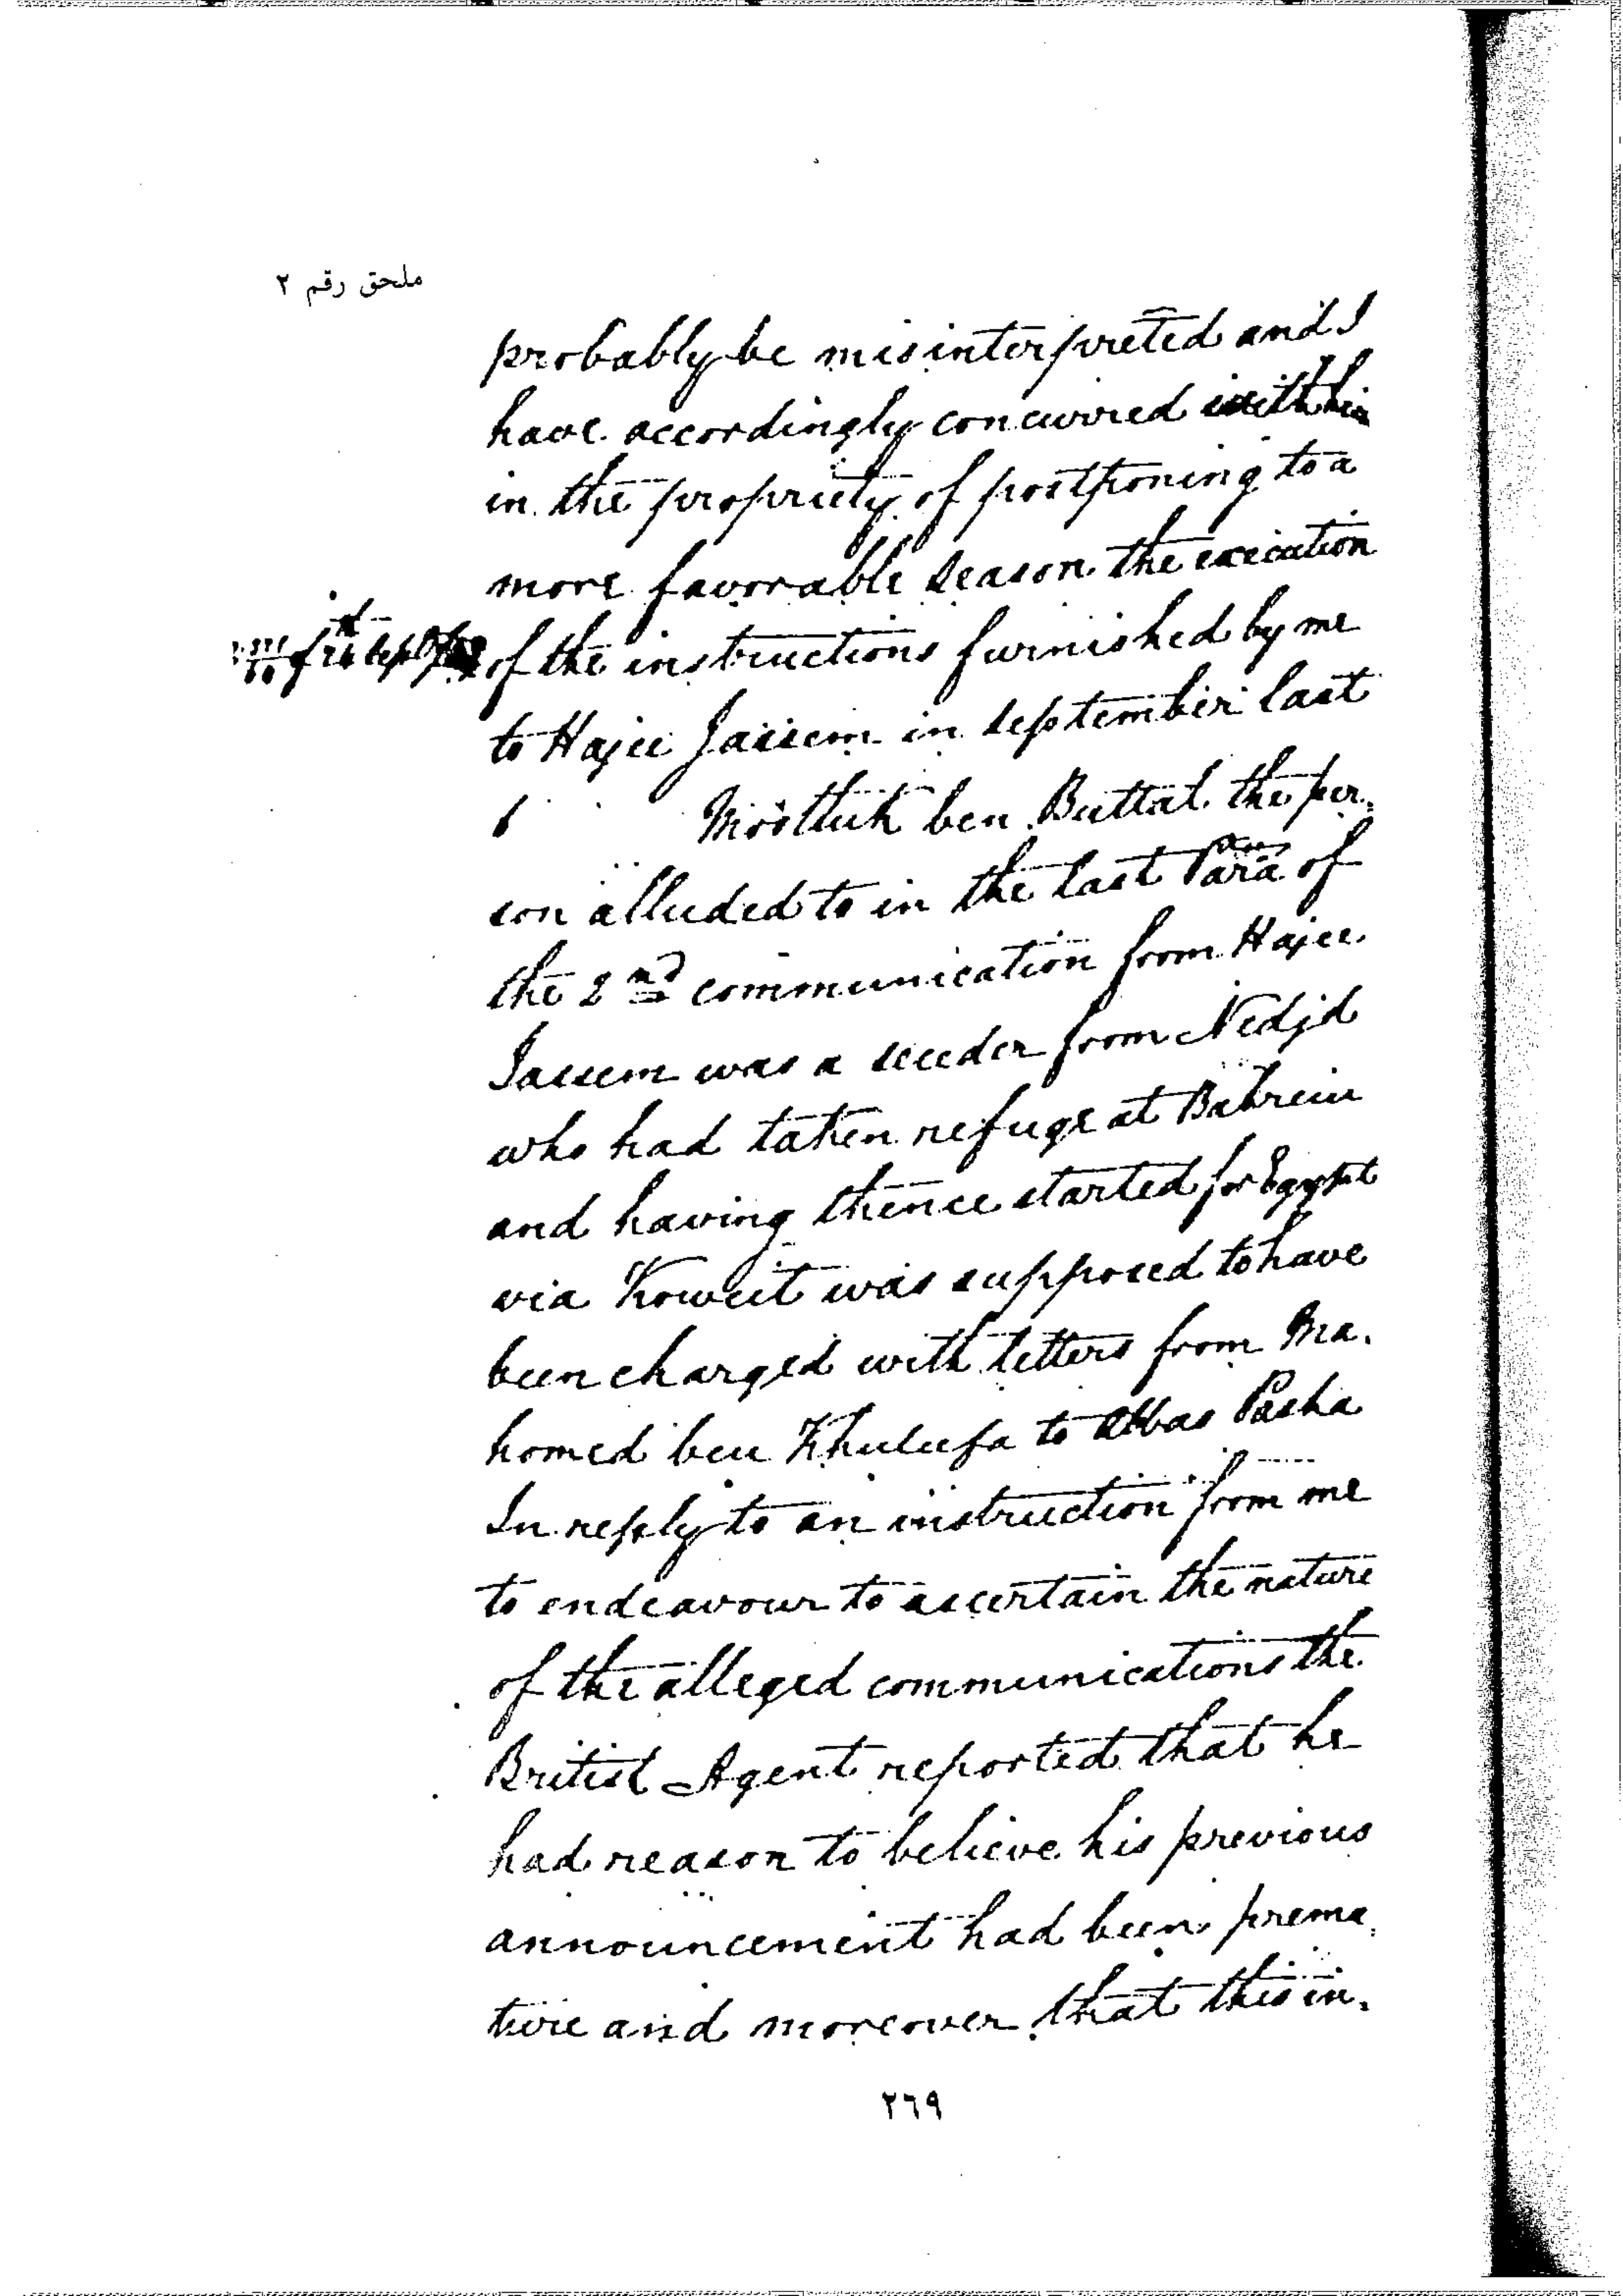 ملحق رقم ٢
probably be misinterpreted and I
have accordingly concurred with him
in the propriety of postponing to a
more favorable season the execution
of the instructions furnished by me
to Hajee Jassem in september last
Moottuk ben Buttal the per=
son alluded to in the last Para of
the 2nd communication from Hajee
Jassem was a seceder from Nedjd
who had taken refuge at Bahrein
and having thence started for Egypt
via Koweit was supposed to have
been charged with letters from Ma.
homed ben Khulufa to Abbas Pasha
In reply to an instruction from me
to endeavour to ascertain the nature
of the alleged communications the
British Agent reported that he
had reason to believe his previous
announcement had been prema=
ture and moreover that this in.
٢٦٩